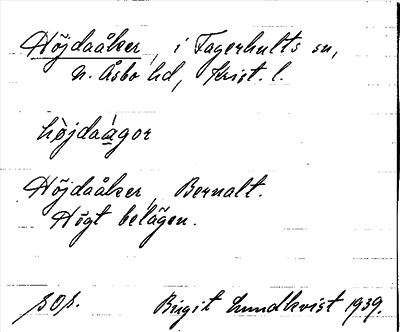 Höjdaåker, i Fagerhults sn,
N. Åsbo hd, Krist. l.
hö̀jdaágor
Höjdaåker, Bernalt.
Högt belägen.
sOs.
Birgit Lundkvist 1939.